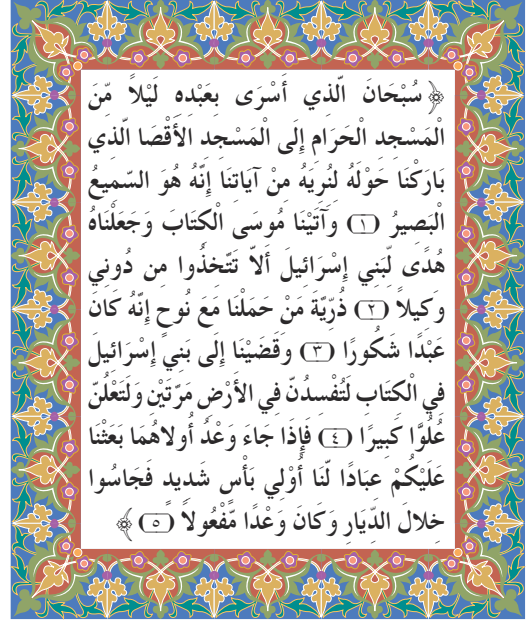 ﴿ سُبْحَانَ الَّذي أَسْرَى بعَبْده لَيْلاً مّنَ
الْمَسْجد الْحَرَام إلَى الْمَسْجد الأَقْصَا الَّذي
بَارَكْنَا حَوْلَهُ لنُريَهُ منْ آيَاتنَا إنَّهُ هُوَ السَّميعُ
الْبَصيرُ (١) وَآتَيْنَا مُوسَى الْكتَاب وَجَعَلْنَاهُ
هُدًى لّبَني إسْرَائيلَ أَلاَّ تَتَّخذُوا من دُوني
وَكيلاً (٢) ذُرّيَّة مَنْ حَمَلْنَا مَعَ نُوح إنَّهُ كَان
عَبْدًا شَكُورًا (٣) وَقَضَيْنَا إلَى بَني إسْرَائيل
في الْكتَاب لَتُفْسدُنَّ في الأَرْض مَرَّتَيْن وَلَتَعْلُنَّ
عُلُوًّا كَبيرًا (٤) فَإذَا جَاءَ وَعْدُ أُولاهُما بَعَثْنا
عَلَيْكُمْ عبَادًا لَّنَا أُوْلي بَأْس شديد فَجَاسُوا
خلال الدّيَار وَكَانَ وَعْدًا مَّفْعُولاً (٥) ﴾